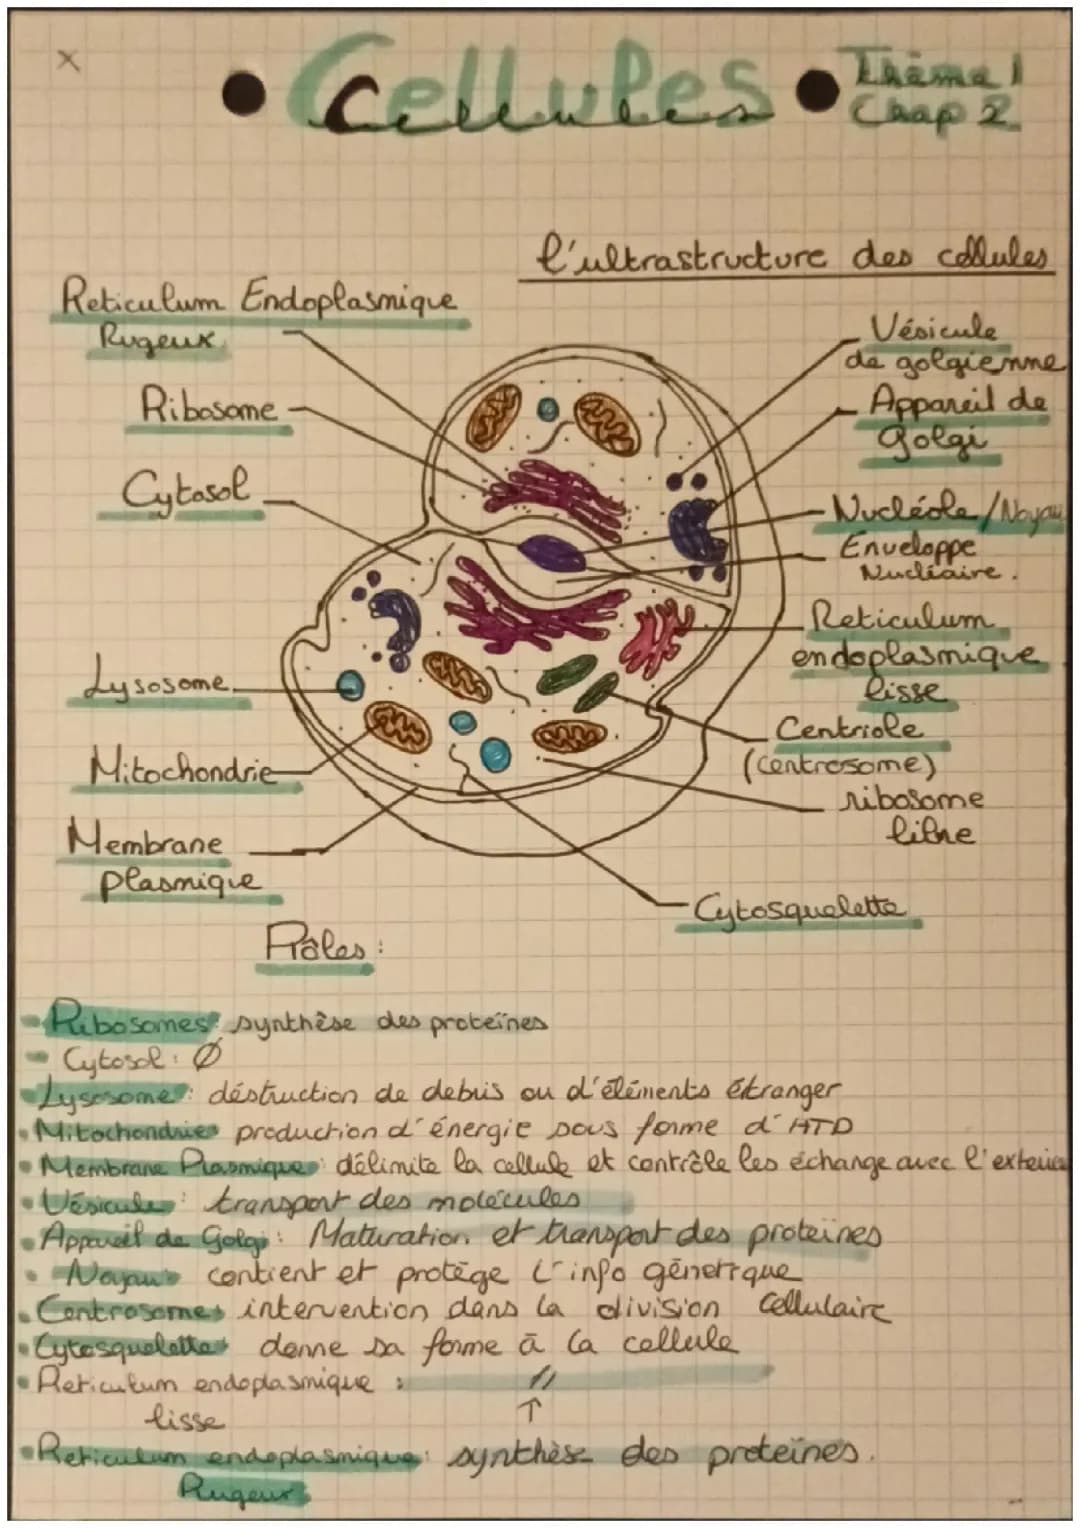 Cellules
Cellules
Thème 1
Chap 2
l'ultrastructure des cellules
Reticulum Endoplasmique
Rugeux
Ribosome
Cytosol
Lysosome
Mitochondrie
Membrane
plasmique
Vésicule
de golgienne
Appareil de
Golgi
Nucléole/Noyau
Enveloppe
Nucléaire.
Reticulum
endoplasmique
lisse
Centriole
(centrosome)
ribosome
libre
Cytosquelette
Rôles :
Ribosomes : synthèse des proteïnes
Cytosol : Ø
Lysosome : déstruction de debris ou d'éléments étranger
Mitochondries production d'énergie sous forme d'ATD
Membrane Plasmique : délimite la cellule et contrôle les échange avec l'exterieu
Vésicule : transport des molécules
Appareil de Golgi : Maturation et transport des proteïnes
Noyau : contient et protège l'info génétique
Centrosome : intervention dans la division cellulaire
Cytosquelette : donne sa forme à la cellule
Reticulum endoplasmique : //
lisse ↑
Reticulum endoplasmique : synthèse des proteïnes.
Rugeux